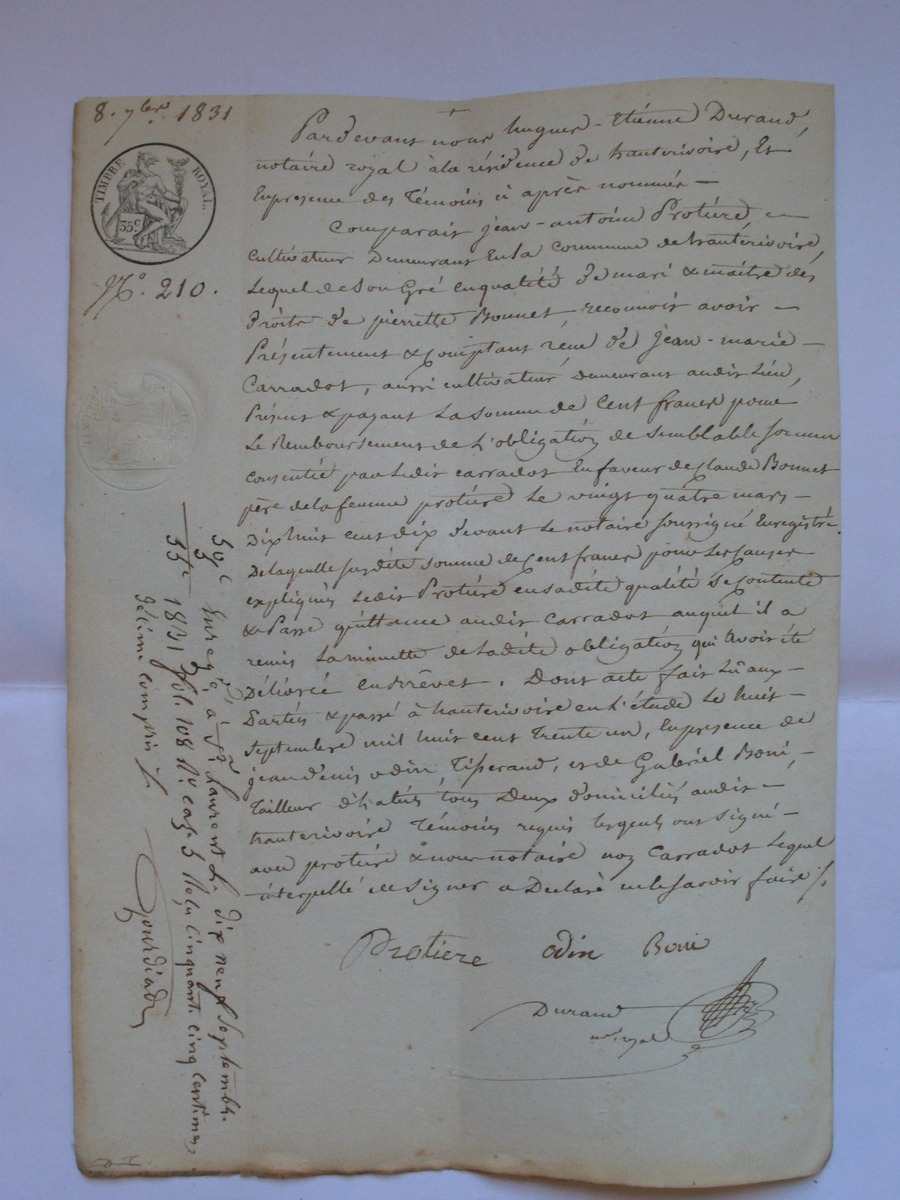 8. 7bre. 1831
TIMBRE ROYAL.
35c
No. 210.
Pardevant nous hugues-Etiénne Durand,
notaire royal à la résidence de hauterivoire, Et
Enpresence des Témoins ci après nommés —
Comparait jean-antoine Protiére —
Cultivateur Demeurant Enla Commune de hauterivoire,
Lequel de Son Gré enqualité de mari & maître des
droits de pierrette Bonnet, reconnoit avoir —
Présentement & comptant réçu de jean-marie —
Carradot, aussi cultivateur demeurant audit Lieu,
Présent & payant La Somme de Cent francs pour
Le Remboursement de L'obligation de Semblable Somme
consentie par Ledit carradot En faveur de Claude Bonnet
pére de la femme protiére Le vingt quatre mars —
Dix huit cent dix devant Le notaire Soussigné Enregistré.
De laquelle Susdite Somme de Cent francs pour Les Causes
expliquées Ledit Protiére en sadite qualité Se Contente
& Passe quittance audit Carradot auquel il a
remis La minute de Ladite obligation qui avoit été
Délivrée en Brévet. Dont acte fait Lû aux —
Parties & passé à hauterivoire en L'étude Le huit —
Septembre mil huit cent Trente un, Enpresence de
jean denis odin, Tisserand, et de Gabriél Boni, —
Tailleur d'habits tous Deux domiciliés audit —
hauterivoire Témoins requis Lesquels ont Signé —
avec protiére & nous notaire non Carradot Lequel
interpellé de Signer a Declaré ne le Savoir faire /.
Protiere odin Boni
Durand
nre. royal
50c
5
55c
Enregé. à St. Laurent Le dix neuf Septembre
1831 fol. 108 Vo. case 5 Reçu Cinquante cinq centimes
décime compris